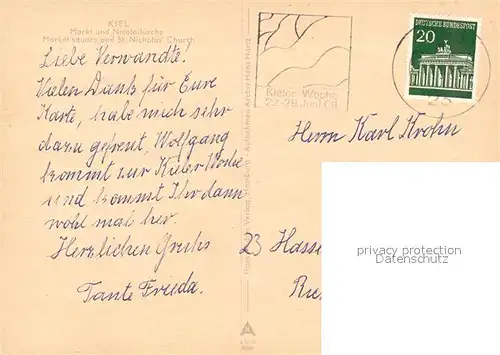 KIEL
Markt und Nicolaikirche
Market square and St. Nicholas' Church
Liebe Verwandte!
Vielen Dank für Eure
Karte, habe mich sehr
dazu gefreut, Wolfgang
kommt zur Kieler Woche
und kommt Ihr dann
wohl mal her.
Herzlichen Gruß
Tante Frieda.
Kieler Woche
22-29. Juni 69
DEUTSCHE BUNDESPOST
20
23
Herrn Karl Krohn
23 Hasse
privacy protection
Datenschutz